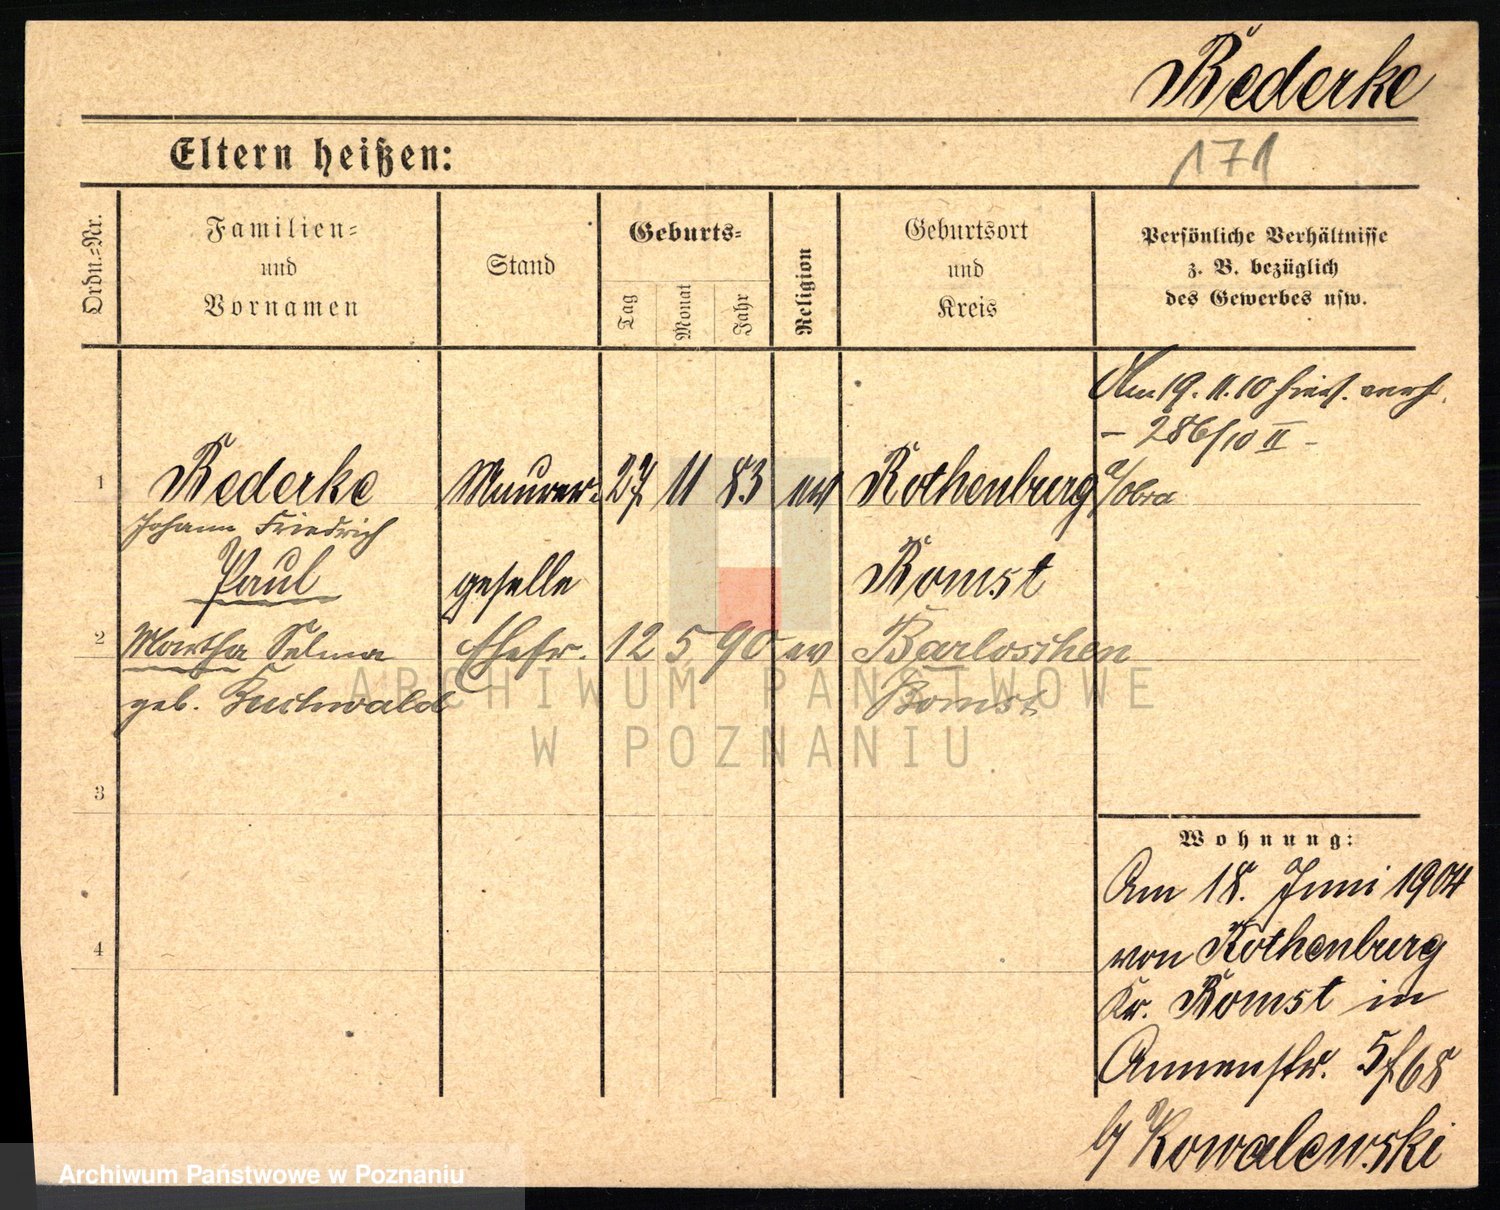 Rederke
171
Eltern heißen:
Ordn.-Nr.
Familien-
und
Vornamen
Stand
Geburts-
Tag
Monat
Jahr
Religion
Geburtsort
und
Kreis
Persönliche Verhältnisse
z. B. bezüglich
des Gewerbes usw.
Am 19.11.10 hier. verh.
– 286/10 II –
1 Rederke Maurer- 27 11 83 ev Rothenburg a/Obra
Johann Friedrich
Paul geselle Bomst
2 Martha Selma Ehefr. 12 5 90 ev Barloschen
geb. Bomst
3
4
Wohnung:
Am 18. Juni 1904
von Rothenburg
Kr. Bomst in
Annenstr. 5/68
b/ Kowalewski
ARCHIWUM PAŃSTWOWE
W POZNANIU
Archiwum Państwowe w Poznaniu